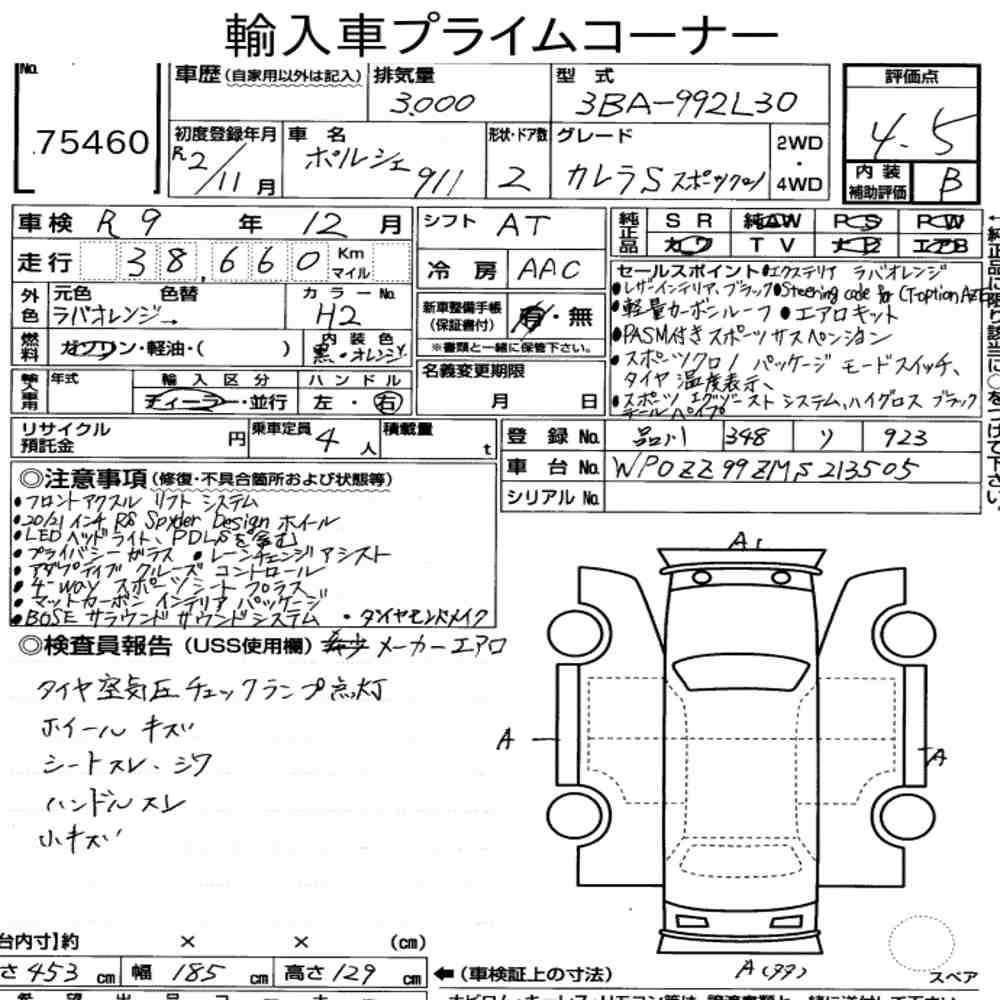 輸入車プライムコーナー
No.
75460
車歴 (自家用以外は記入)
排気量
3.000
型 式
3BA-992L30
評価点
4.5
初度登録年月
R2/11 月
車 名
ポルシェ 911
形状・ドア数
2
グレード
カレラS スポーツクロノ
2WD
・
4WD
内装
補助評価
B
車検 R9 年 12 月
走行 38,660 Km
マイル
シフト AT
冷 房 AAC
純正品
SR 純正AW PS PW
カワ TV ナビ エアB
外色
元色 色替
ラバオレンジ→
カラーNo.
H2
新車整備手帳
(保証書付)
有・無
※書類と一緒に保管下さい。
燃料
ガソリン・軽油・( )
内装色
黒・オレンジ
名義変更期限
月 日
輸入車用
年式
輸入区分
ディーラー・並行
ハンドル
左・右
リサイクル
預託金
円
乗車定員 4 人
積載量
t
セールスポイント ●エクステリア ラバオレンジ
●レザーインテリア、ブラック ●Steering code for
●軽量カーボンルーフ ●エアロキット
●PASM付きスポーツサスペンション
●スポーツクロノ パッケージ モードスイッチ、
タイヤ温度表示、
●スポーツ エグゾースト システム、ハイグロス ブラック
テールパイプ
登 録 No. 品川 348 ソ 923
車 台 No. WP0ZZ99ZMS213505
シリアル No.
◎注意事項 (修復・不具合箇所および状態等)
●フロントアクスル リフト システム
●20/21インチ RS Spyder Design ホイール
●LEDヘッドライト、PDLSを含む
●プライバシーガラス ●レーンチェンジアシスト
●アダプティブ クルーズ コントロール
●4-way スポーツシート プラス
●マットカーボン インテリア パッケージ
●BOSE サラウンド サウンドシステム ・タイヤモンドメイク
◎検査員報告 (USS使用欄) メーカーエアロ
タイヤ空気圧チェックランプ点灯
ホイール キズ
シートスレ・シワ
ハンドルスレ
小キズ
A
A
A
A
スペア
台内寸】約 × × (cm)
さ 453 cm 幅 185 cm 高さ 129 cm
←(車検証上の寸法)
←純正品に限り該当に○をつけて下さい。